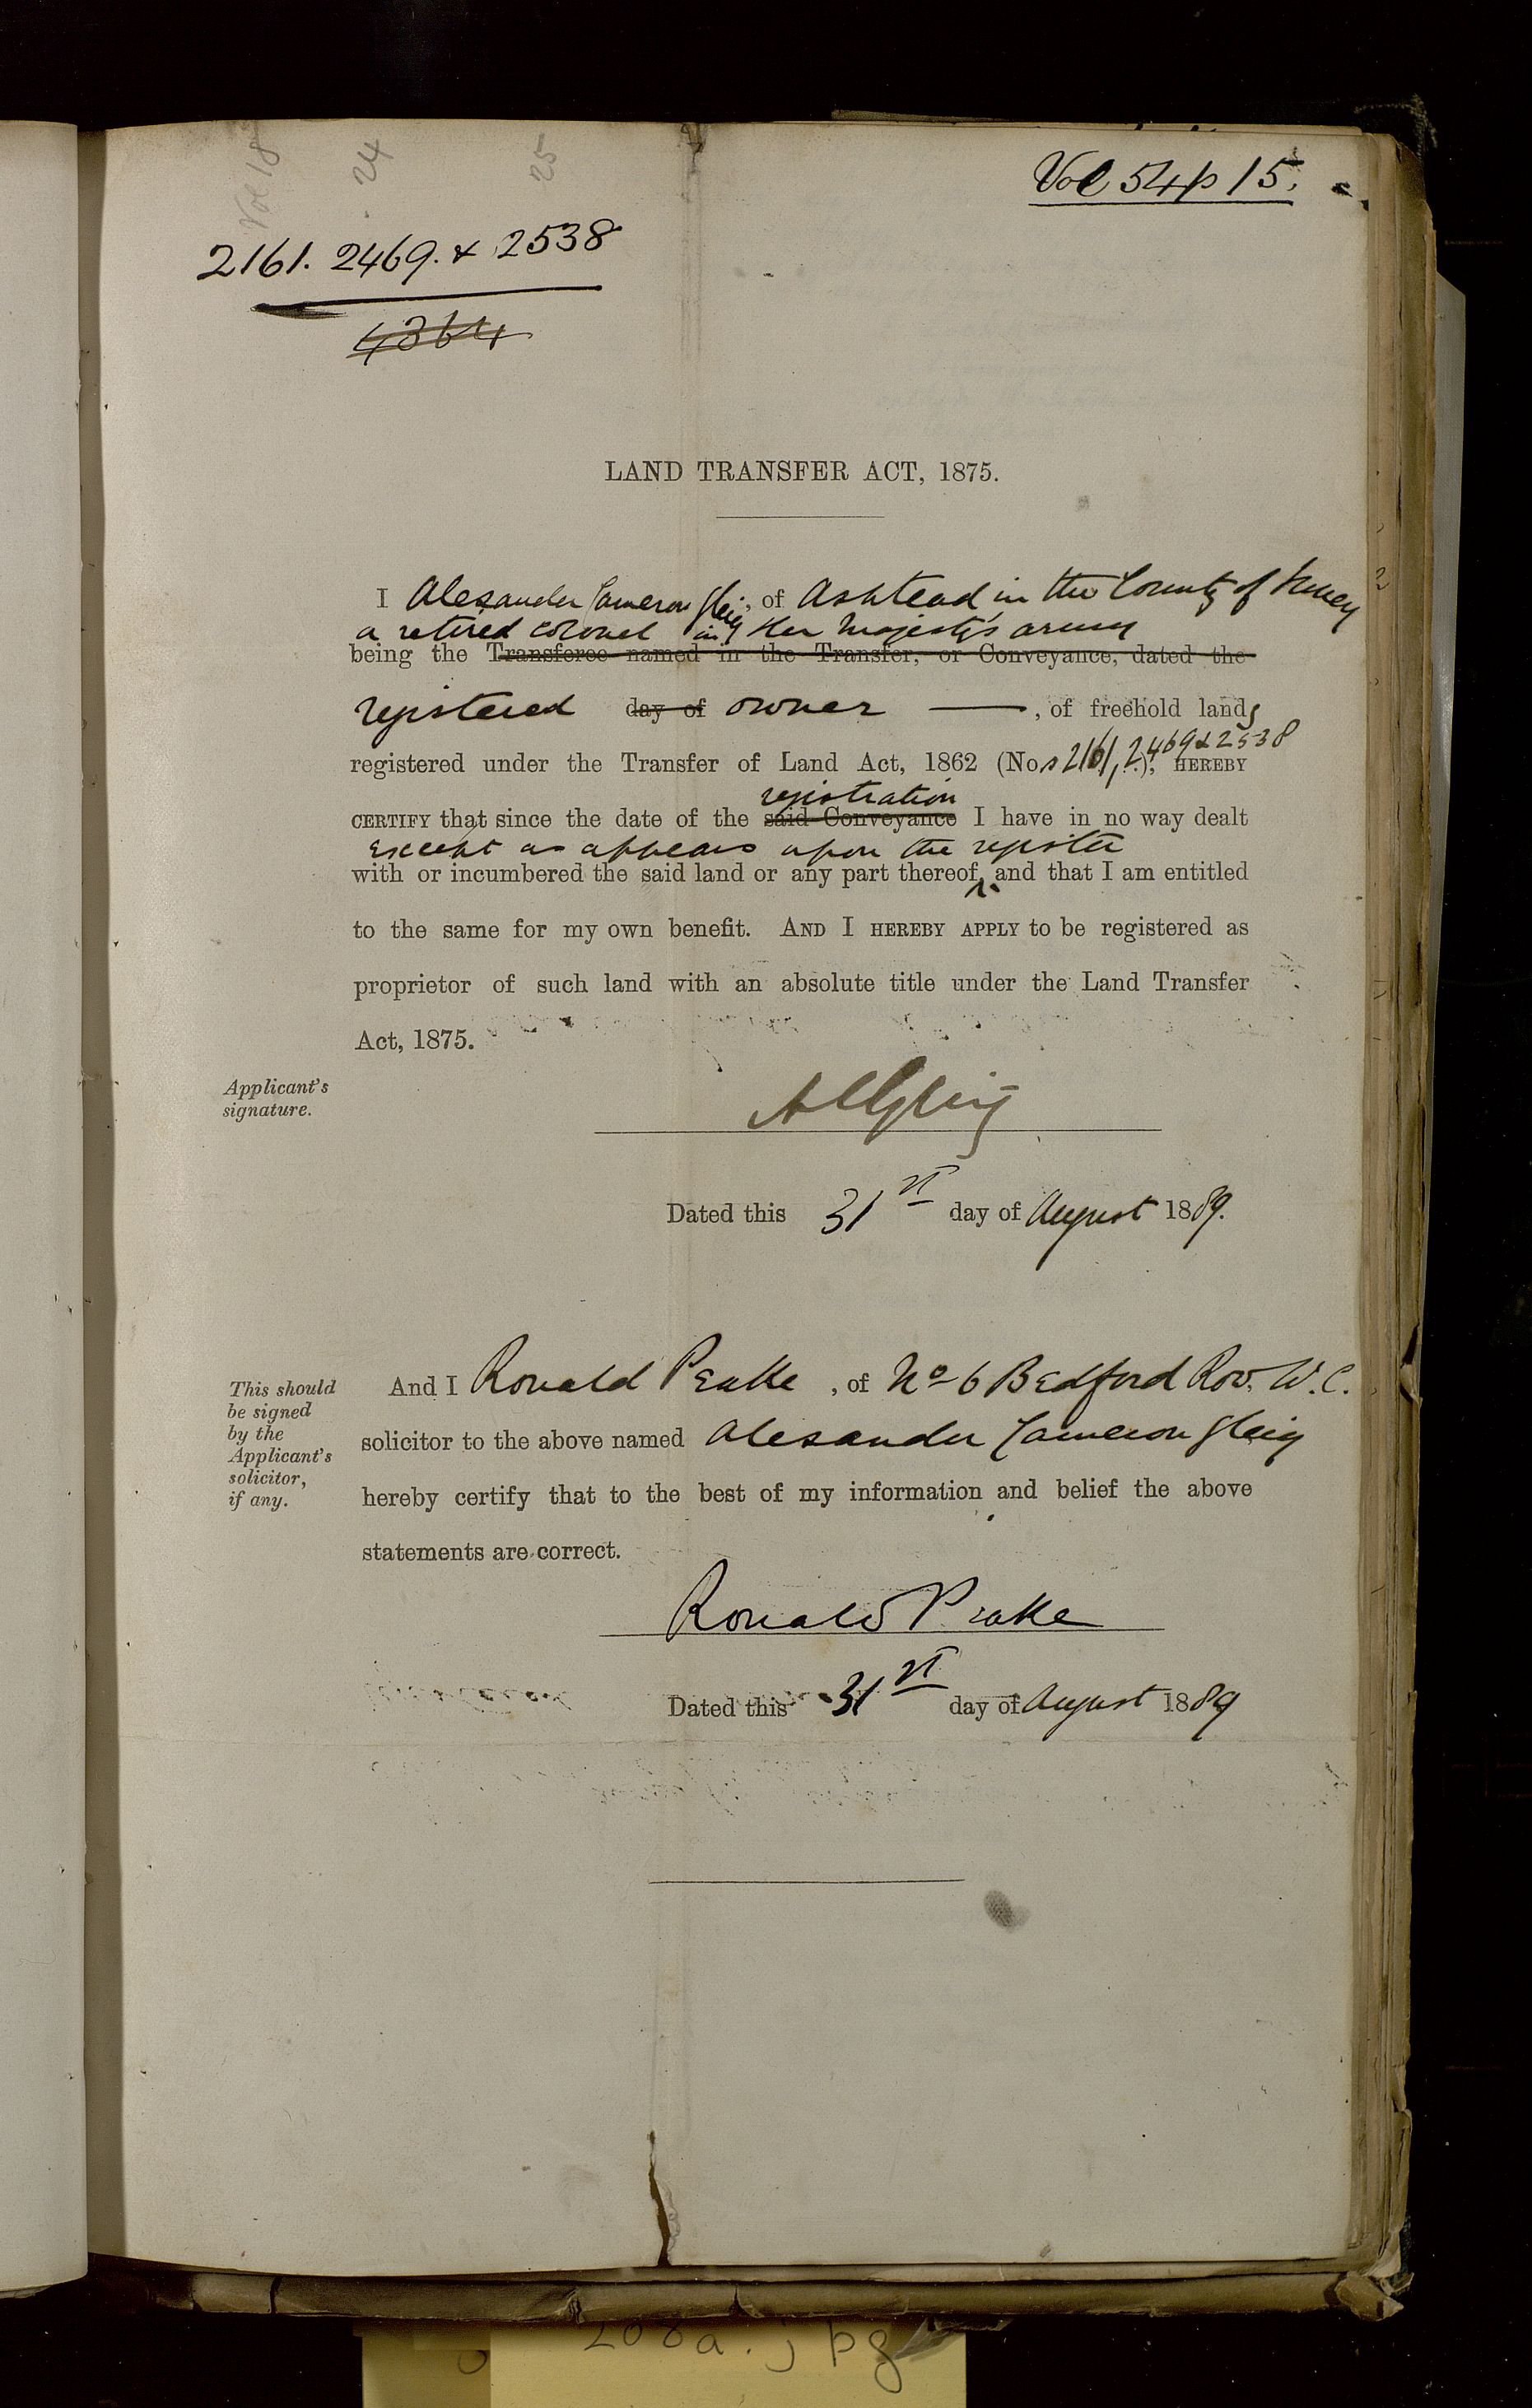 Vol 18 24 25
Vol 54 p 15.
2161. 2469. & 2538
4364
LAND TRANSFER ACT, 1875.
I Alexander Cameron Gleig, of Ashtead in the County of Surrey
a retired colonel in Her Majesty's army
being the Transferee named in the Transfer, or Conveyance, dated the
registered day of owner —, of freehold lands
registered under the Transfer of Land Act, 1862 (Nos 2161, 2469 & 2538), HEREBY
registration
CERTIFY that since the date of the said Conveyance I have in no way dealt
except as appears upon the register
with or incumbered the said land or any part thereof, and that I am entitled
to the same for my own benefit. AND I HEREBY APPLY to be registered as
proprietor of such land with an absolute title under the Land Transfer
Act, 1875.
Applicant's
signature.
A C Gleig
Dated this 31st day of August 1889.
This should
be signed
by the
Applicant's
solicitor,
if any.
And I Ronald Peake, of No 6 Bedford Row. W.C.
solicitor to the above named Alexander Cameron Gleig
hereby certify that to the best of my information and belief the above
statements are correct.
Ronald Peake
Dated this 31st day of August 1889
208a.jpg